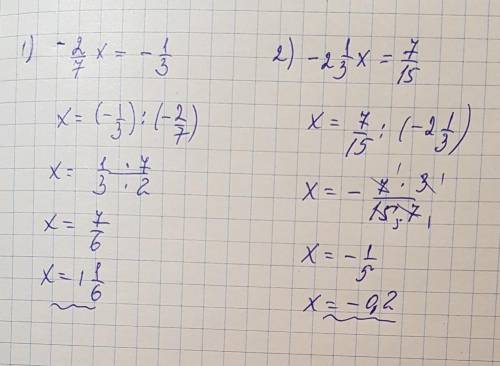 1) -2/7 x = -1/3
x = (-1/3) : (-2/7)
x = 1 · 7 / 3 · 2
x = 7/6
x = 1 1/6
2) -2 1/3 x = 7/15
x = 7/15 : (-2 1/3)
x = - 7 1 · 3 1 / 15 5 · 7 1
x = -1/5
x = -0,2